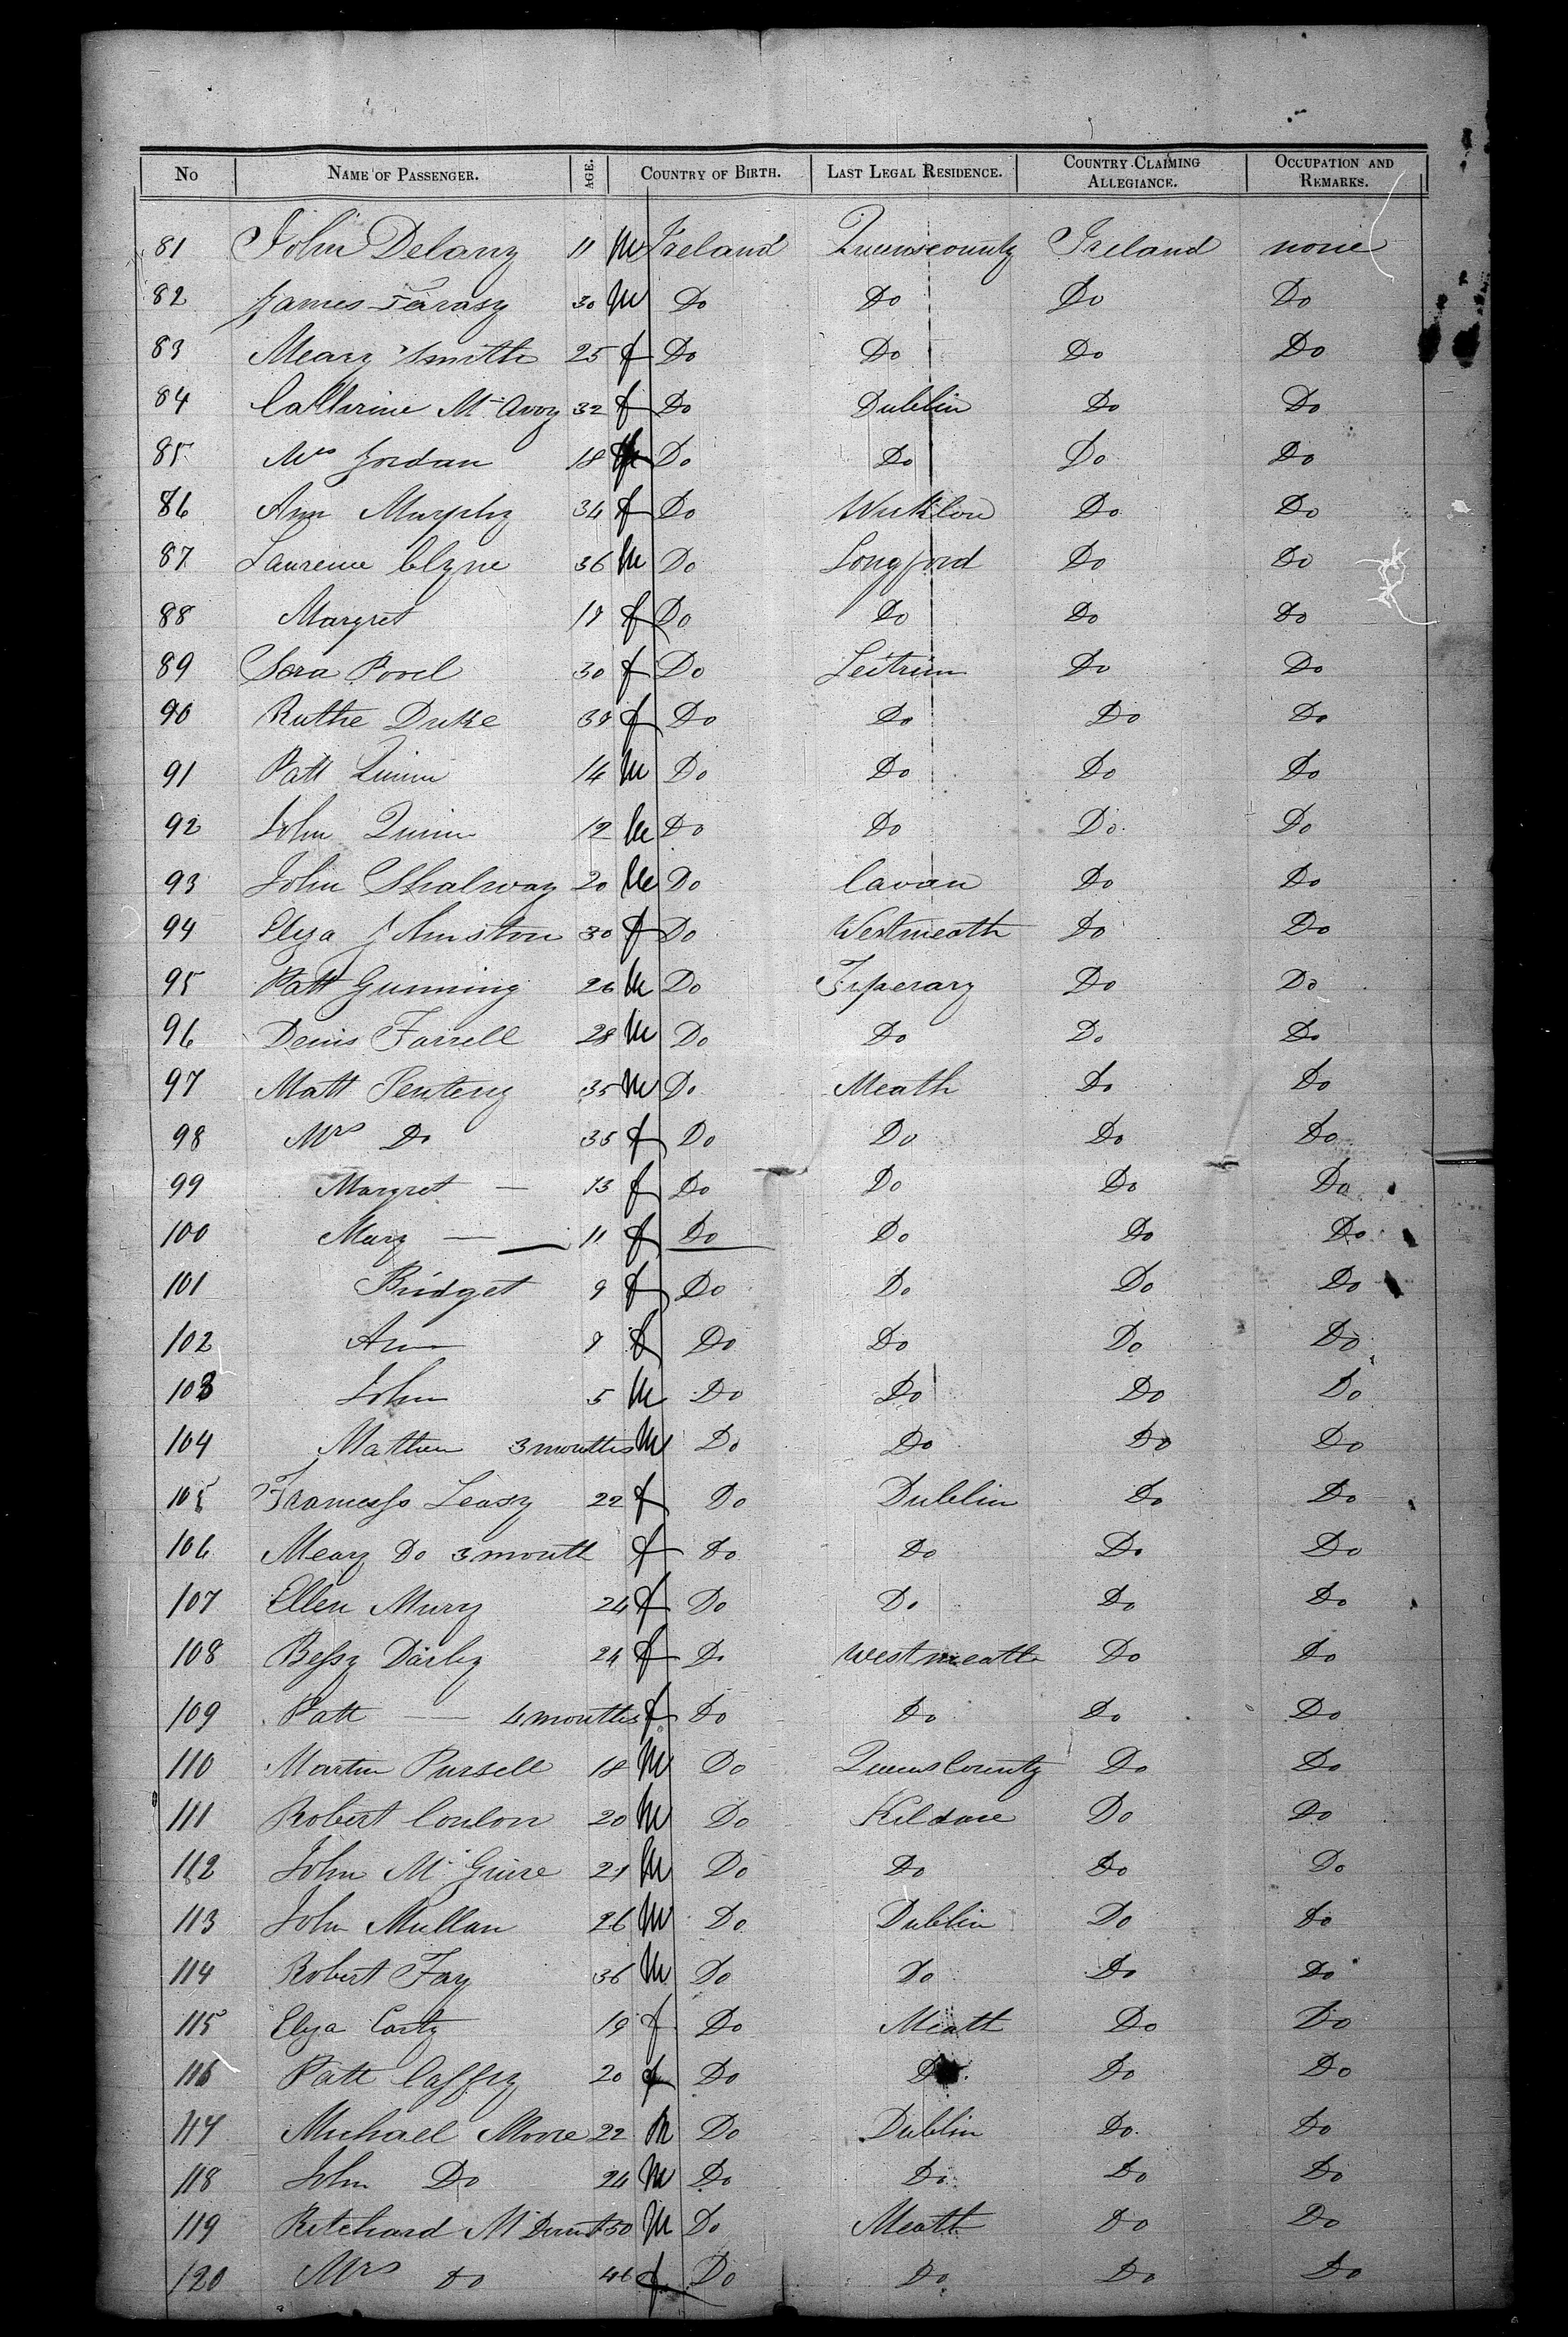 No NAME OF PASSENGER. AGE. COUNTRY OF BIRTH. LAST LEGAL RESIDENCE. COUNTRY CLAIMING ALLEGIANCE. OCCUPATION AND REMARKS.
81 John Delany 11 M Ireland Queenscounty Ireland none
82 James 30 M Do Do Do Do
83 Meary Smith 25 f Do Do Do Do
84 Catherine Mc Avoy 32 f Do Dublin Do Do
85 Mrs Jordan 18 Do Do Do Do
86 Ann Murphy 34 f Do Wicklow Do Do
87 Laurence Clyne 36 M Do Longford Do Do
88 Margret f Do Do Do Do
89 Sera Pool 30 f Do Leitrim Do Do
90 Ruthe Duke f Do Do Do Do
91 Patt Quinn 14 M Do Do Do Do
92 John Quinn 12 M Do Do Do Do
93 John Shalway 20 M Do Cavan Do Do
94 Elyza Johnston 30 f Do Westmeath Do Do
95 Patt Gunning 26 M Do Tiperary Do Do
96 Denis Farrell 28 M Do Do Do Do
97 Matt Penteny 35 M Do Meath Do Do
98 Mrs Do 35 f Do Do Do Do
99 Margret — 13 f Do Do Do Do
100 Mary — 11 f Do Do Do Do
101 Bridget 9 f Do Do Do Do
102 Ann f Do Do Do Do
103 John 5 M Do Do Do Do
104 Mathew 3 months M Do Do Do Do
105 Leasy 22 f Do Dublin Do Do
106 Meary Do 3 month f Do Do Do Do
107 Ellen Mury 24 f Do Do Do Do
108 Bessy Darby 24 f Do Westmeath Do Do
109 Patt — 4 months f Do Do Do Do
110 Martin Pursell 18 M Do Queens County Do Do
111 Robert Conlon 20 M Do Kildare Do Do
112 John Mc Guire 21 M Do Do Do Do
113 John Mullan 26 M Do Dublin Do Do
114 Robert Fay 36 M Do Do Do Do
115 Elyza Carty 19 f Do Meath Do Do
116 Patt Caffry 20 f Do Do Do Do
117 Michael Moore 22 M Do Dublin Do Do
118 John Do 24 M Do Do Do Do
119 Ritchard 50 M Do Meath Do Do
120 Mrs Do 46 f Do Do Do Do